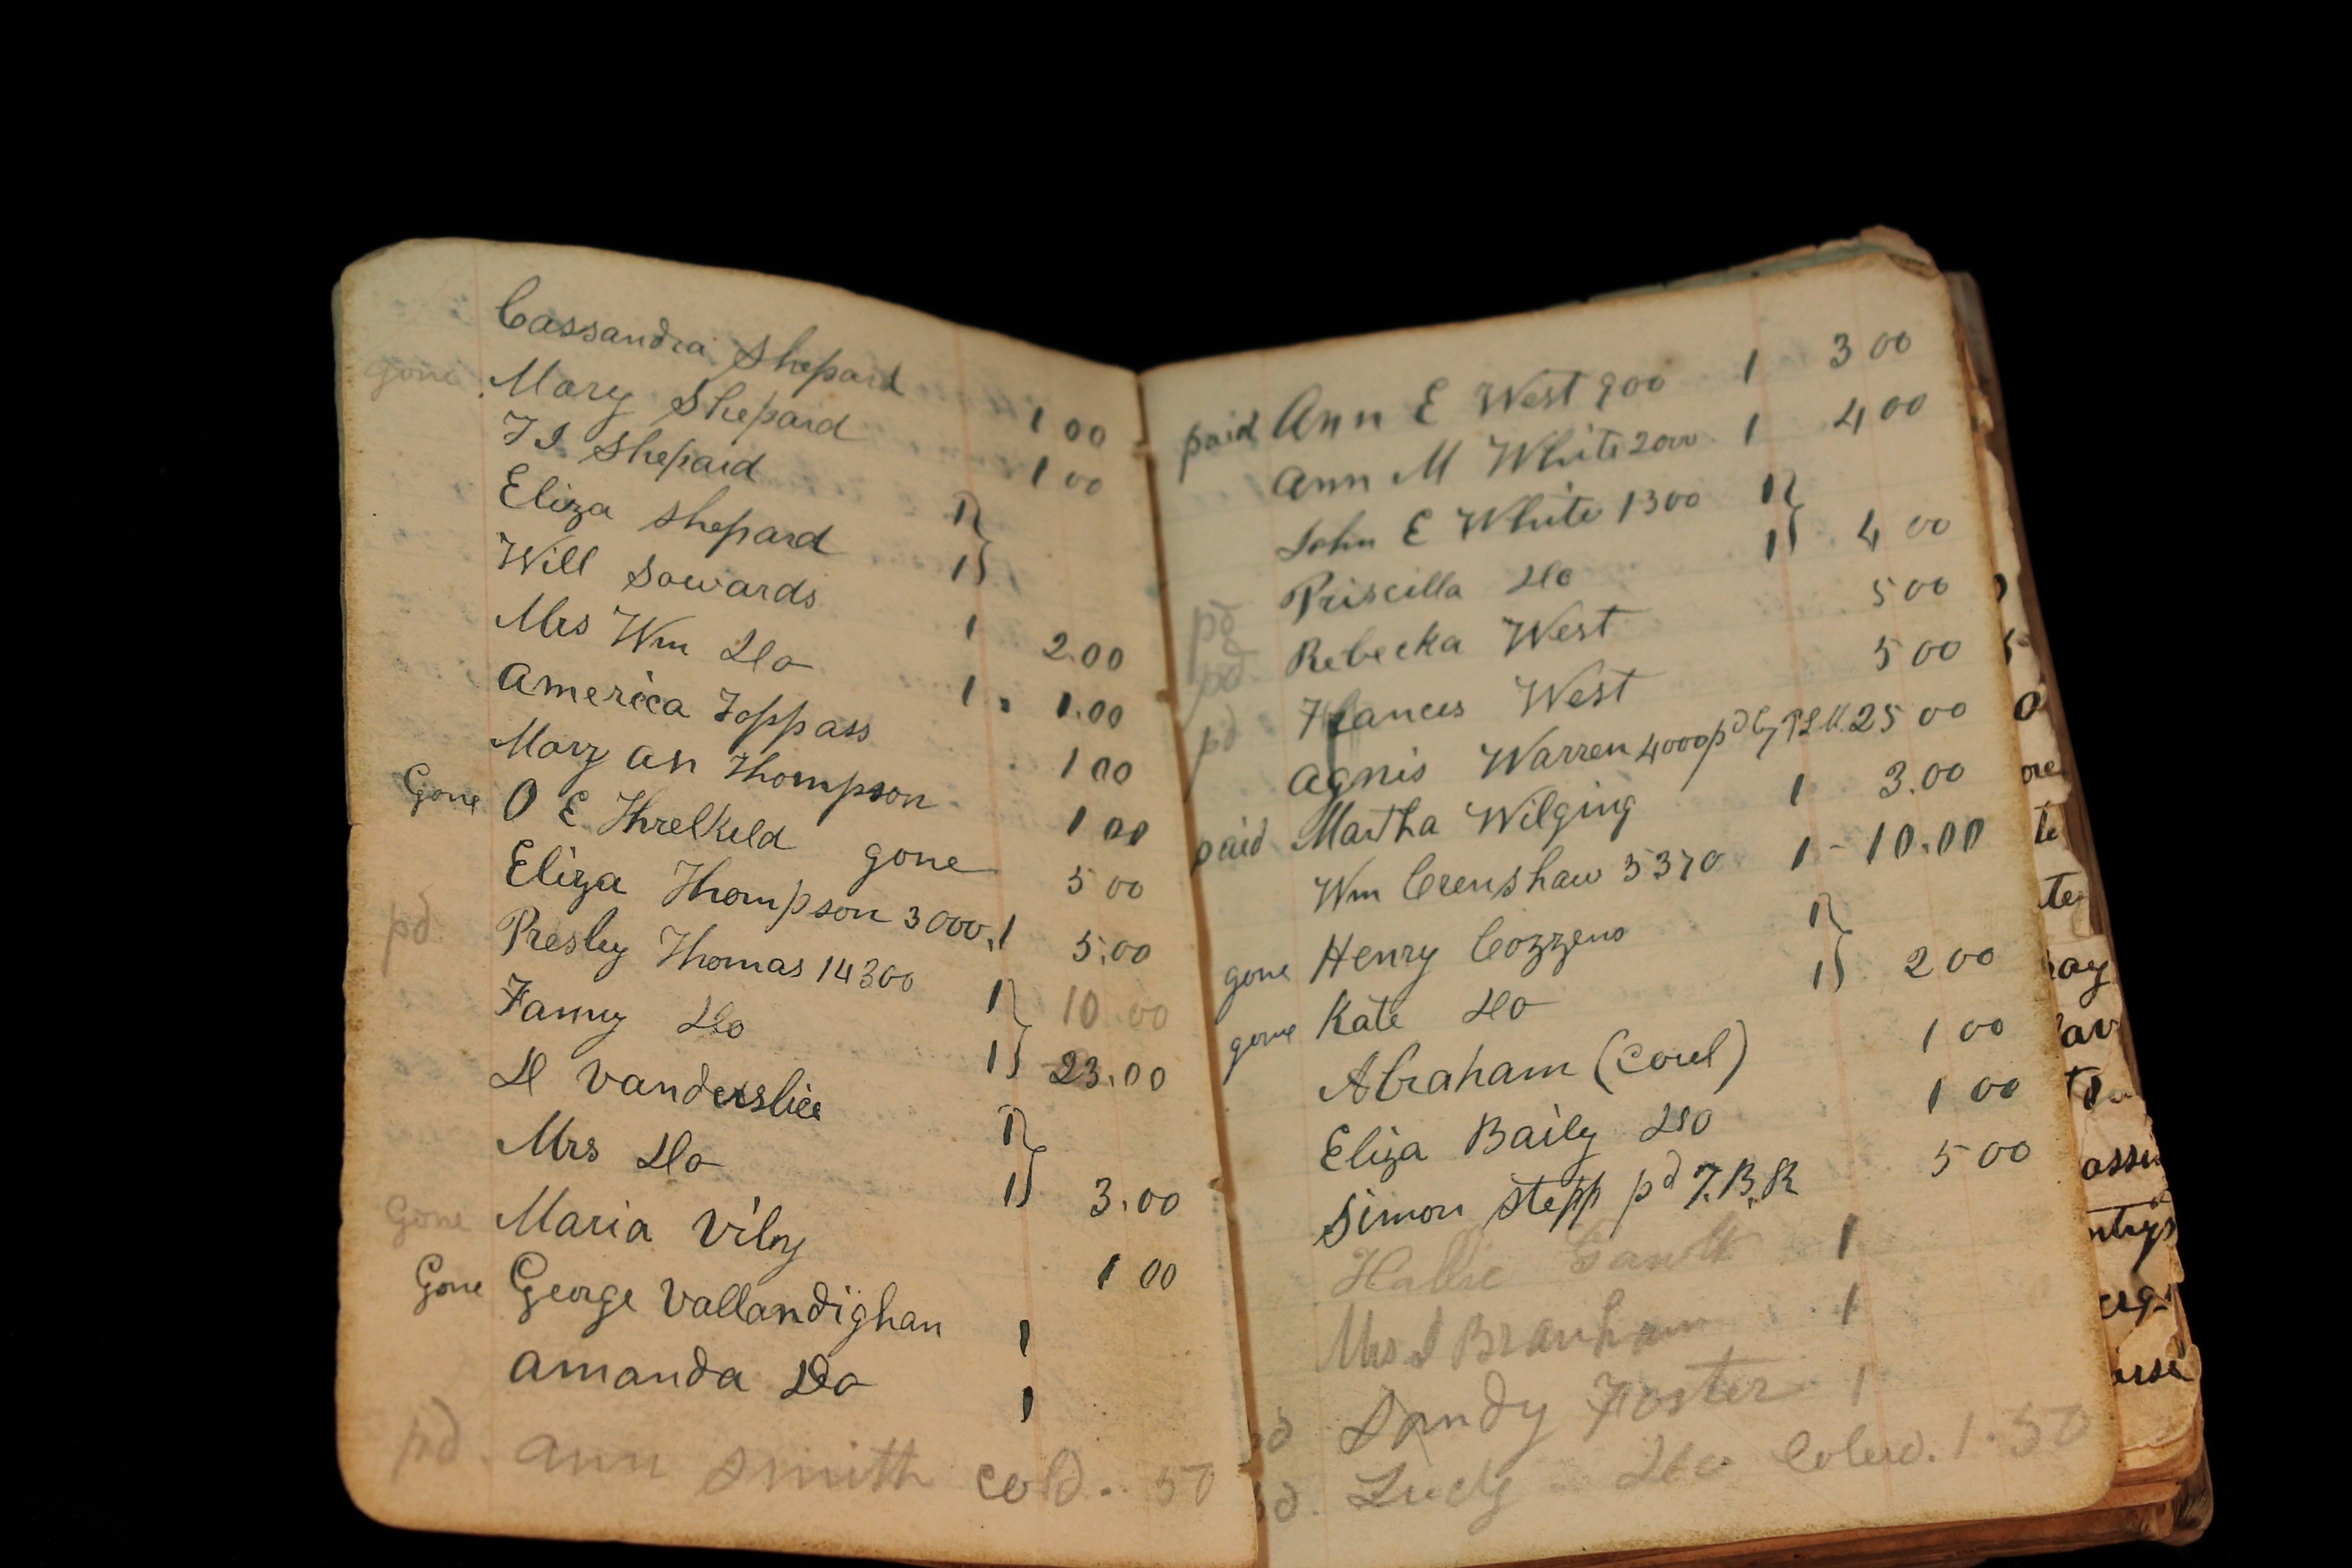 Cassandra Shepard 1 00
gone Mary Shepard 1 00
T J Shepard 1
Eliza Shepard 1
Will Sowards 1 2.00
Mrs Wm Do 1 1.00
America Toppass 1 00
Mary an Thompson 1 00
Gone O E Threlkeld gone 5 00
Eliza Thompson 3000 1 5.00
pd Presley Thomas 14300 1 10.00
Fanny Do 1 23.00
D Vanderslice 1
Mrs Do 1 3.00
Gone Maria Vily 1 00
Gone George Vallandighan 1
Amanda Do 1
pd. Ann Smith cold. 50
paid Ann E West 900 1 3 00
Ann M White 2000 1 4 00
John E White 1300 1
Priscilla Do 1 4 00
pd Rebecka West 5 00
pd. Frances West 5 00
pd Agnis Warren 4000 pd by 25 00
paid Martha Wilging 1 3.00
Wm Crenshaw 5370 1 - 10.00
gone Henry Cozzens 1
gone Kate Do 1 2 00
Abraham (Coul) 1 00
Eliza Baily Do 1 00
Simon Stepp pd T.B.R 5 00
Hallie 1
Mrs J Branham 1
pd Sandy Foster 1
pd. Lucy - Do Colerd. 1.50